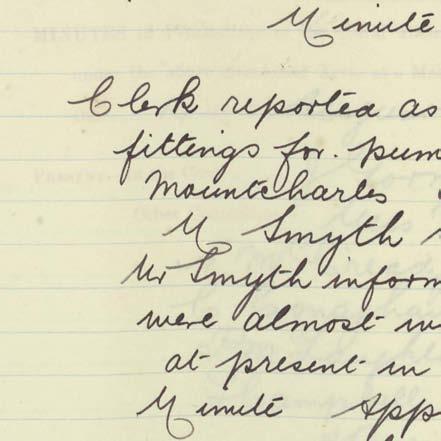 Minute
Clerk reported as
fittings for. pum
Mountcharles
M Smyth
Mr Smyth inform
were almost
at present in
Minute App